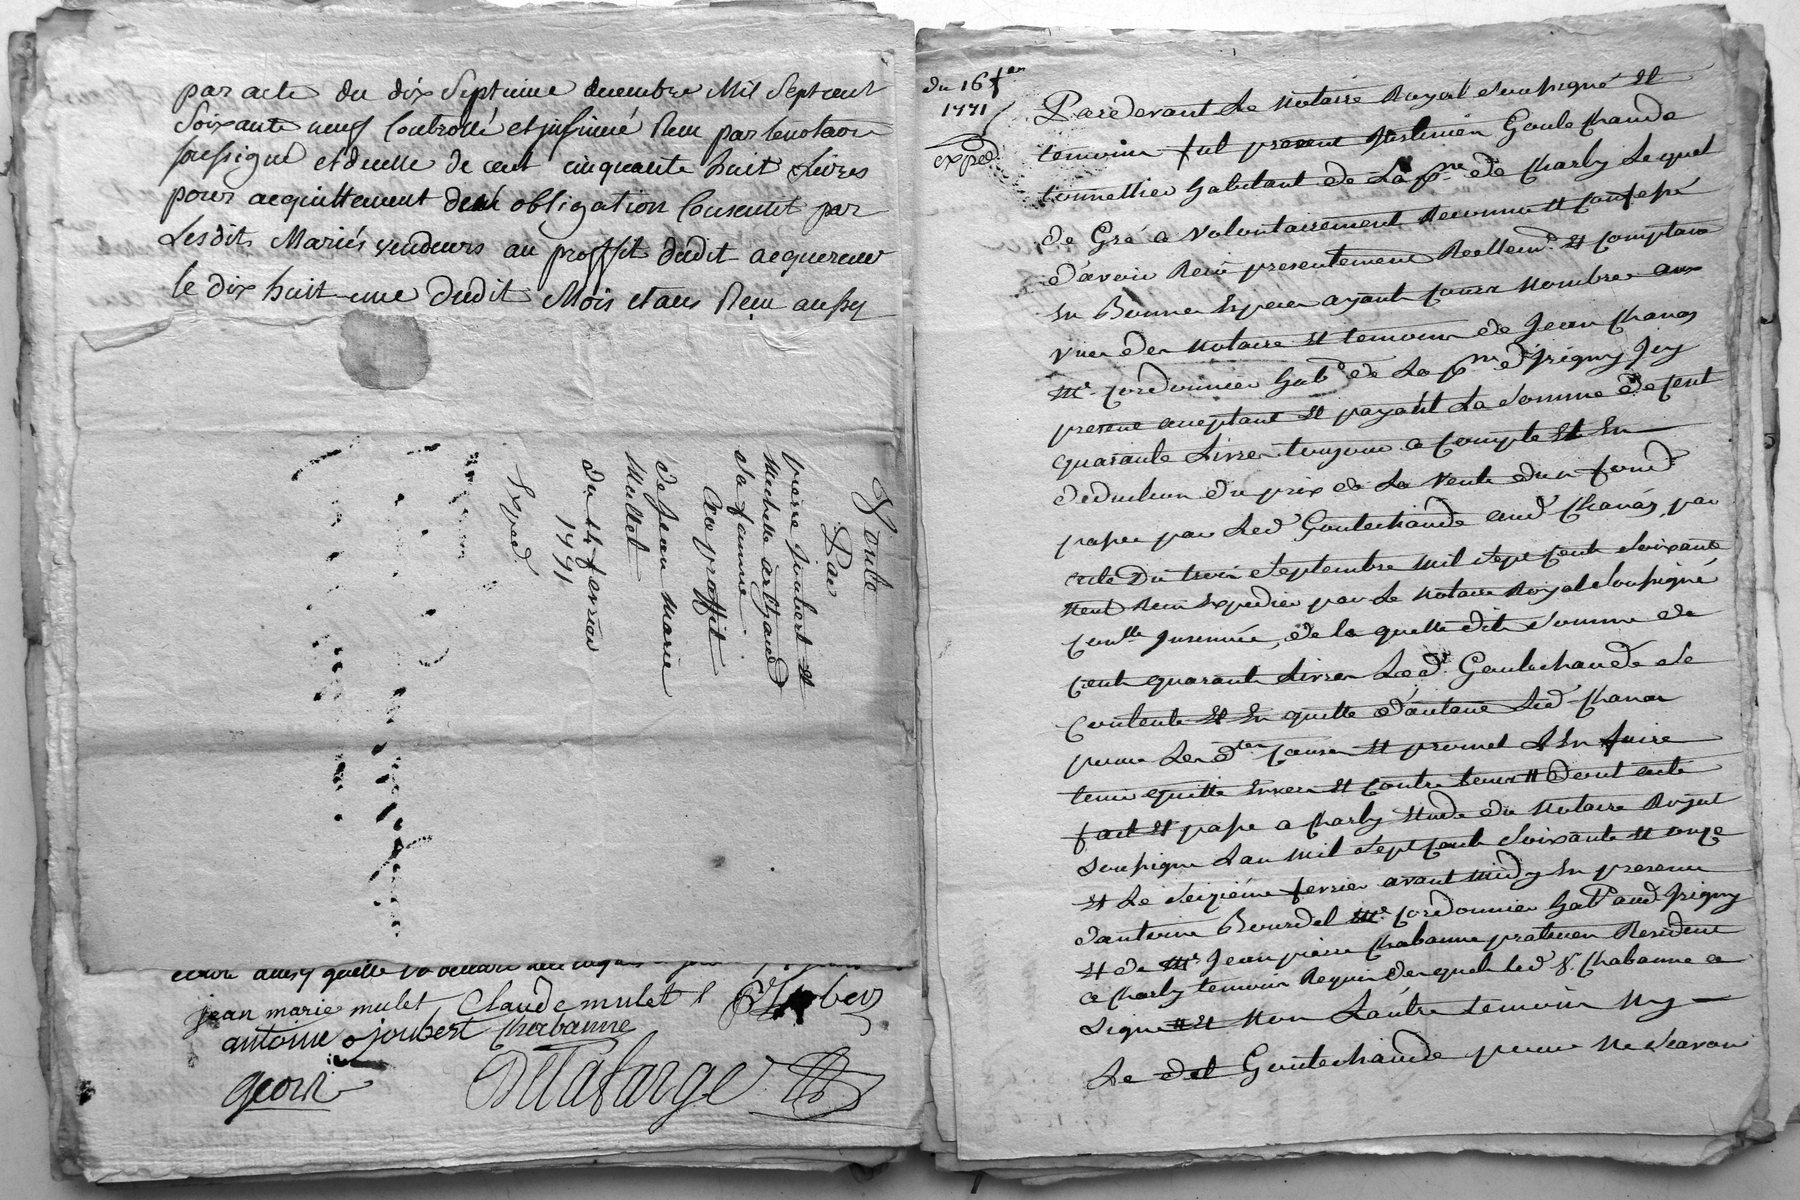 par acte du dix Septieme decembre Mil Sept cent
Soixante neuf Controllé et insinué Receu par le notaire
soussigné et de celle de cent cinquante huit Livres
pour acquittement de obligation Consentit par
Lesdits Mariés vendeurs au proffit dudit acquereur
le dix huit dudit Mois et an Receu aussy
Vente
Par
pierre joubert et
Michelle
sa famme
Au proffit
de jean marie
Mullet
du 14 fevrier
1771
Exped
jean marie mulet Claude mulet
antoine joubert Chabanne
Delafarge
du 16 fer
1771
exped
Pardevant Le Notaire Royal soussigné et
temoins fut present Goutechaude
tonnellier habitant de La psse de Charly Lequel
de Gré a volontairement Reconnu et Confessé
d'avoir Receu presentement Reellemt et Comptant
en Bonnes Especes ayant Cours Nombrées aux
vues des Notaire et temoins de Jean Chanas
me Cordonnier habt de La psse d'jrigny jcy
present acceptant et payant La Somme de Cent
quarante Livres toujours a Compte et En
deduction du prix de La Vente d'un fond
passee par Led Goutechaude aud Chanas par
acte du trois Septembre mil sept cent Soixante
Neuf Receu Expedier par Le Notaire Royal soussigné
Conlle jnsinué, de la quelle dite Somme de
Cent quarante Livres Led Goutechaude Se
Contente Et En quitte d'autant Led Chanas
pour Les dtes Causes et promet L'En faire
tenir quitte Envers et Contre tous dont acte
fait et passé a Charly Etude du Notaire Royal
Soussigné L'an mil Sept Cent Soixante et onze
et Le Seizieme fevrier avant midy En presence
d'antoine Bourdel me Cordonnier habt aud jrigny
et de me Jean pierre Chabanne praticien Resident
a Charly temoins Requis des quels led Sr Chabanne a
Signé et Non L'autre temoin Ny
Le dit Goutechaude pour Ne Scavoir